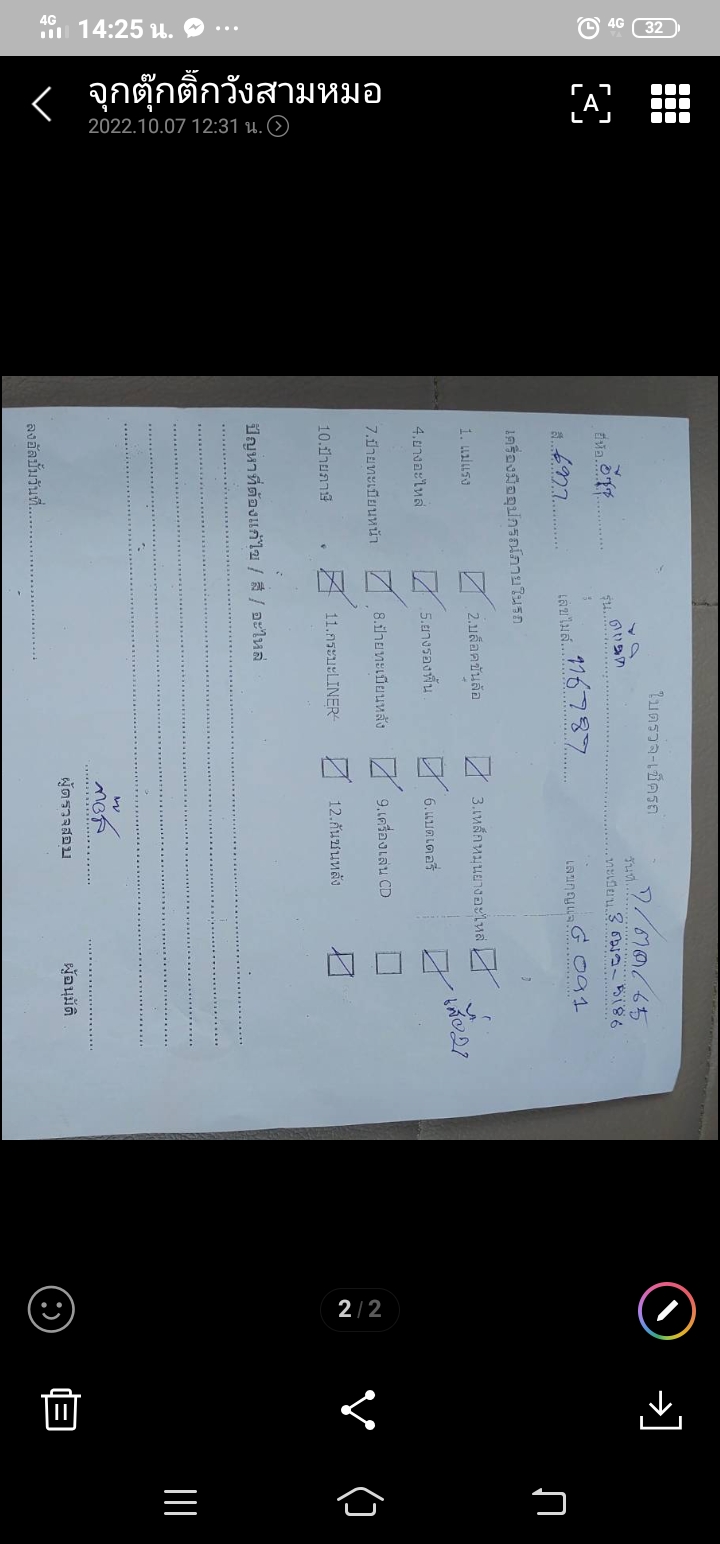 4G 14:25 น. ... 4G 32
จุกตุ๊กติ๊กวังสามหมอ
2022.10.07 12:31 น.
A
ใบตรวจ-เช็ครถ
วันที่ 7/ตค/65
ยี่ห้อ อีซูซุ รุ่น ทะเบียน
สี เทา เลขไมล์ เลขกุญแจ
เครื่องมืออุปกรณ์ภายในรถ
1. แม่แรง 2.บล็อคขันล้อ 3.เหล็กหมุนยางอะไหล่
4.ยางอะไหล่ 5.ยางรองพื้น 6.แบตเตอรี่
7.ป้ายทะเบียนหน้า 8.ป้ายทะเบียนหลัง 9.เครื่องเล่น CD
10.ป้ายภาษี 11.กระบะLINER 12.กันชนหลัง
ปัญหาที่ต้องแก้ไข / สี / อะไหล่
ผู้ตรวจสอบ ผู้อนุมัติ
ลงอัลบั้มวันที่
2 / 2